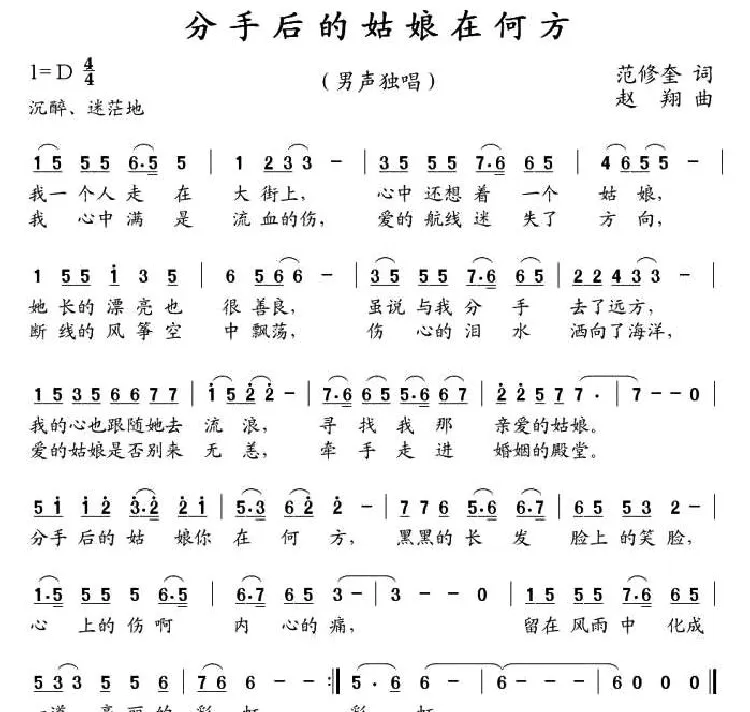 分手后的姑娘在何方
1=D 4/4
（男声独唱）
范修奎 词
赵 翔 曲
沉醉、迷茫地
1 5 5 5 6·5 5 | 1 2 3 3 - | 3 5 5 5 7·6 6 5 | 4 6 5 5 - |
我一个人走在 大街上， 心中还想着一个 姑娘，
我 心中满是 流血的伤， 爱的航线迷失了 方向，
1 5 5 i 3 5 | 6 5 6 6 - | 3 5 5 5 7·6 6 5 | 2 2 4 3 3 - |
她长的漂亮也 很善良， 虽说与我分手 去了远方，
断线的风筝空 中飘荡， 伤心的泪水 洒向了海洋，
1 5 3 5 6 6 7 7 | i 5 2 2 - | 7·6 6 5 5·6 6 7 | 2 2 5 7 7 · | 7 - - 0 |
我的心也跟随她去 流浪， 寻找我那 亲爱的姑娘。
爱的姑娘是否别来 无恙， 牵手走进 婚姻的殿堂。
5 i i 2 3·2 2 i | 5·3 6 2 2 - | 7 7 6 5·6 6·7 | 6 5 5 3 2 - |
分手后的姑娘你 在何方， 黑黑的长发 脸上的笑脸，
1·5 5 5 5 6·5 | 6·7 6 5 3 - | 3 - - 0 | 1 5 5 5 7·6 6 5 |
心上的伤啊 内心的痛， 留在风雨中化成
5 3 3 5 5 6 | 7 6 6 - - :‖ 5 · 6 6 - | 6 - - - | 6 - - - ‖